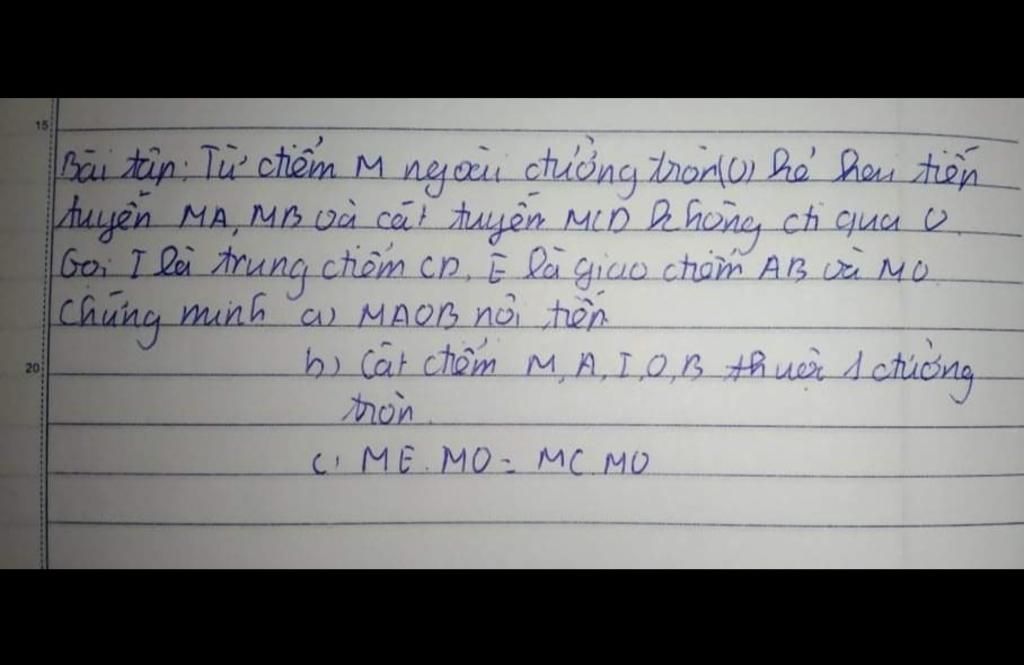 15
Bài tập: Từ điểm M ngoài đường tròn (O) kẻ hai tiến
tuyến MA, MB và cát tuyến MCD không đi qua O.
Gọi I là trung điểm CD, E là giao điểm AB và MO
Chứng minh a) MAOB nội tiến
20
b) Cát điểm M, A, I, O, B thuộc 1 đường
tròn.
c, ME.MO = MC.MO